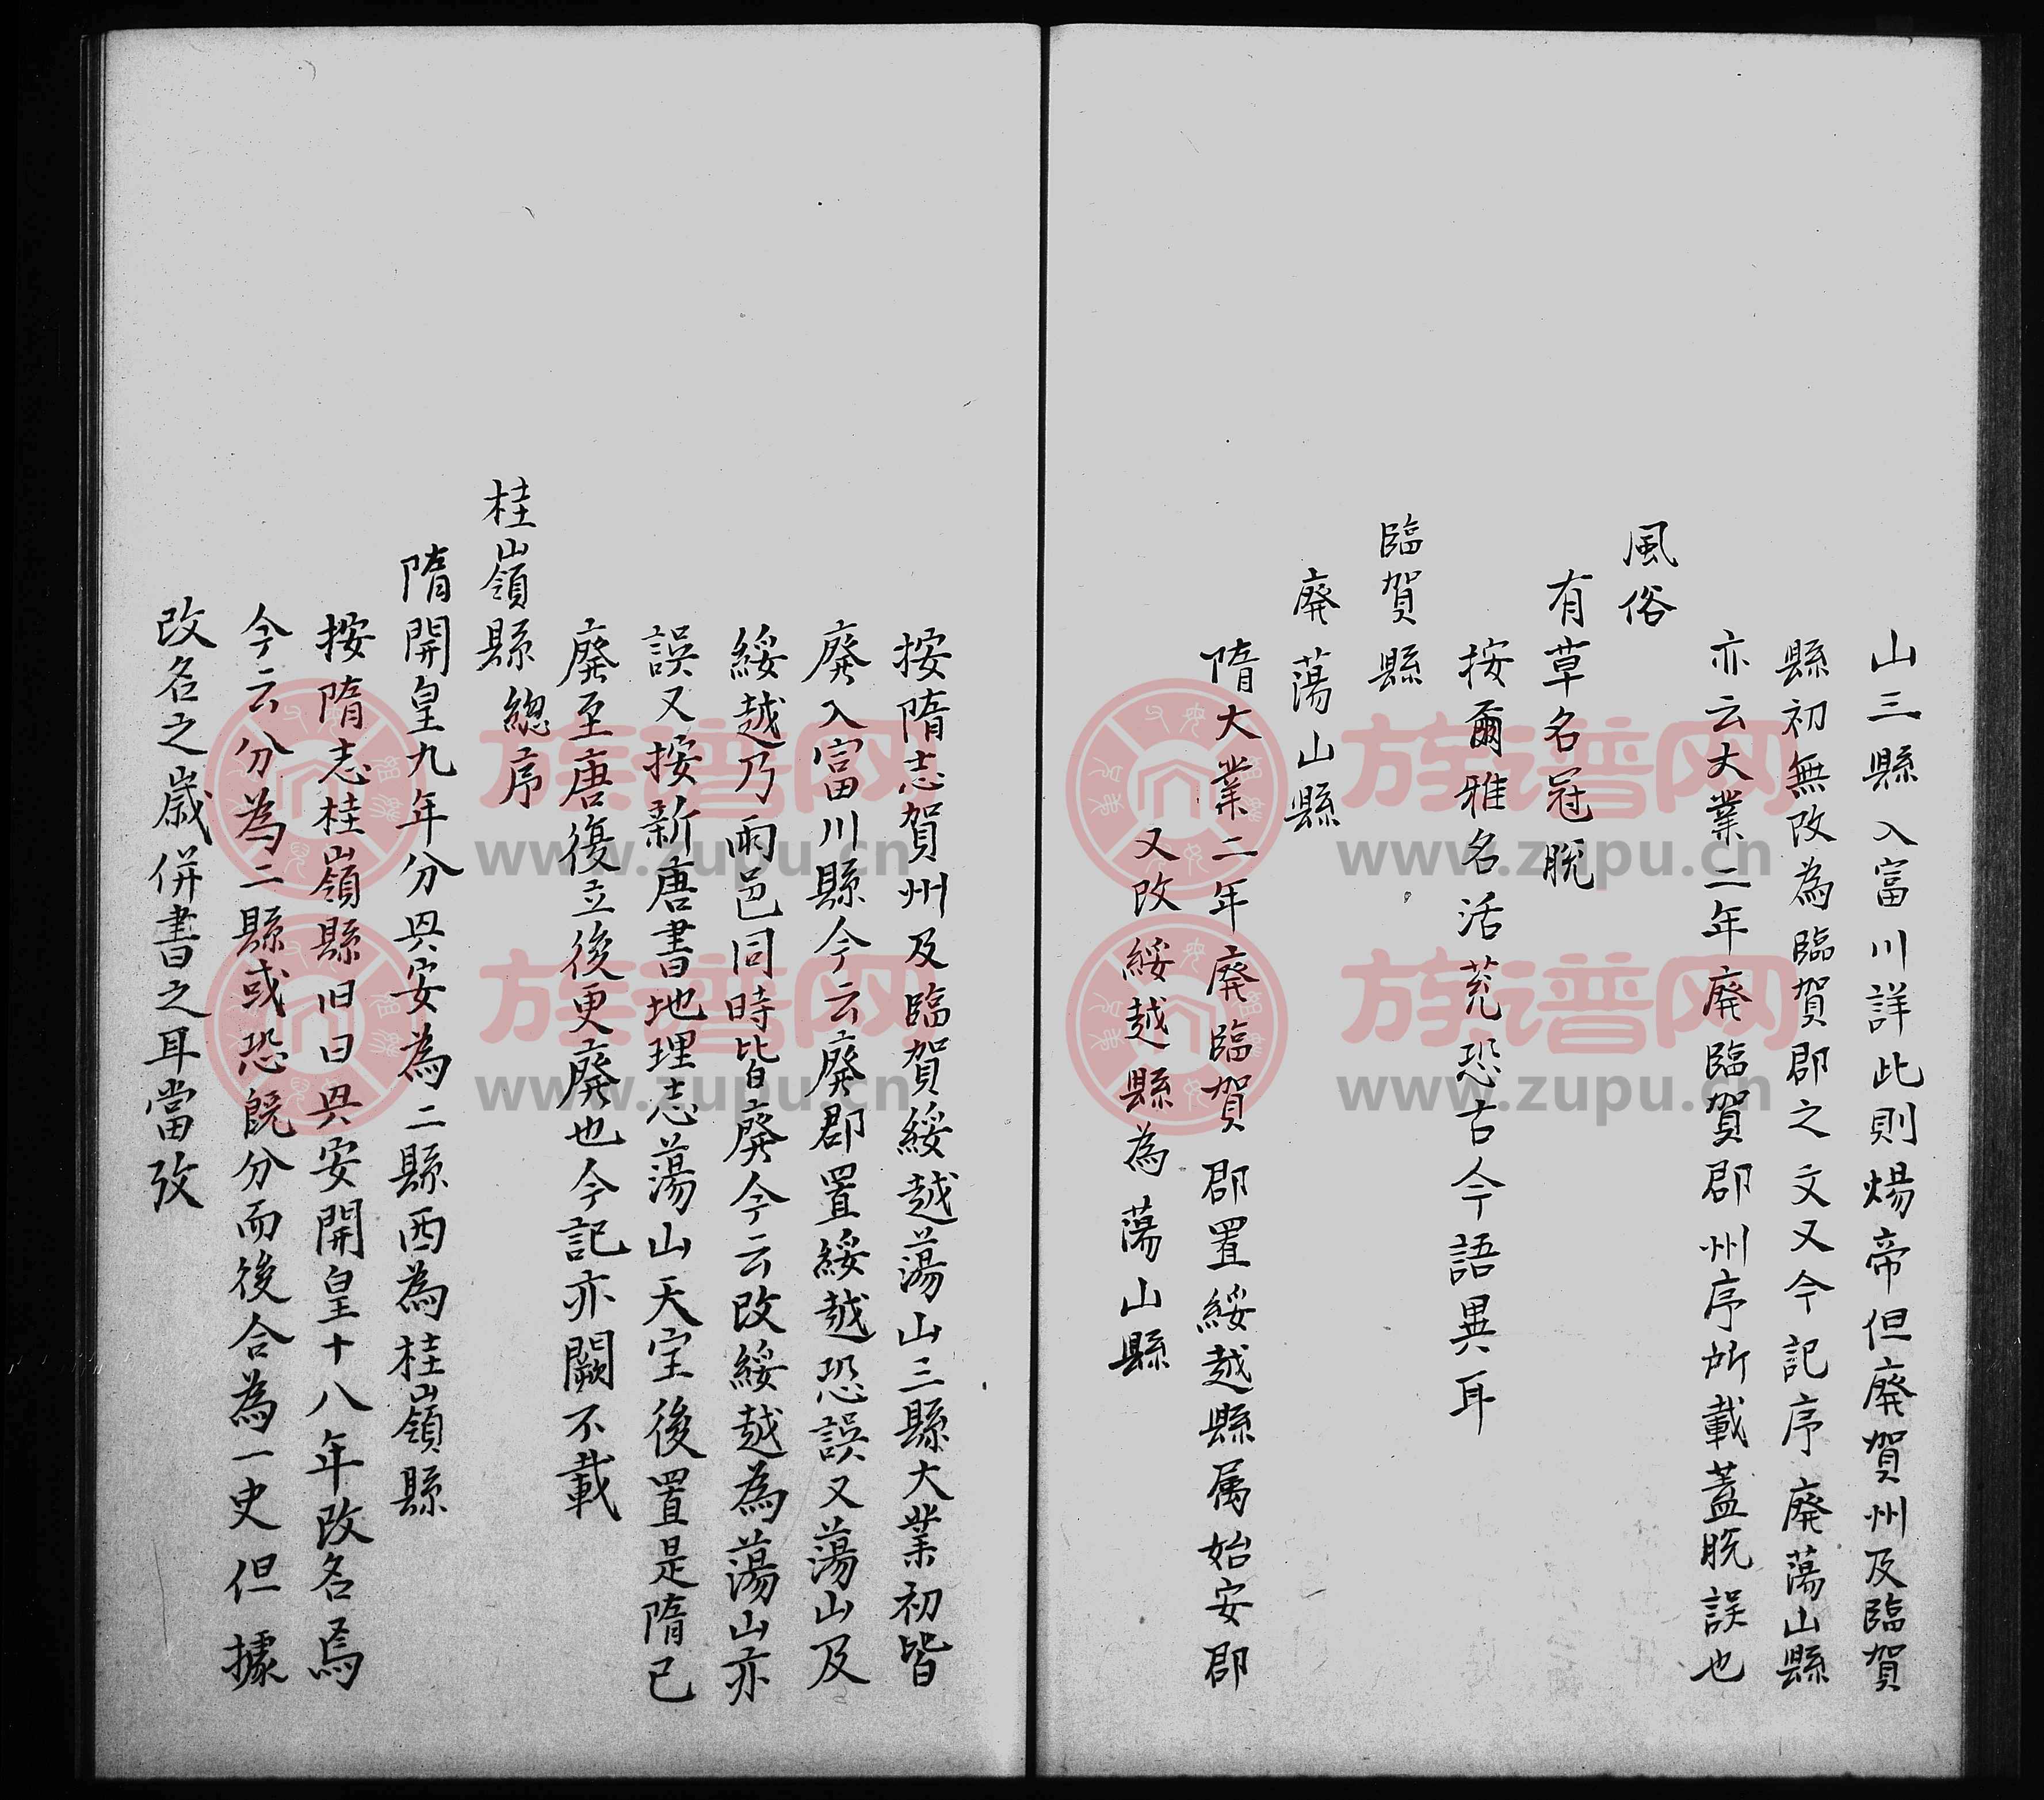 山三縣入富川詳此則煬帝但廢賀州及臨賀
縣初無改為臨賀郡之文又今記序廢蕩山縣
亦云大業二年廢臨賀郡州序所載蓋脫誤也
風俗
有草名冠脫
按爾雅名活莌恐古今語異耳
臨賀縣
廢蕩山縣
隋大業二年廢臨賀郡置綏越縣属始安郡
又改綏越縣為蕩山縣
按隋志賀州及臨賀綏越蕩山三縣大業初皆
廢入富川縣今云廢郡置綏越恐誤又蕩山及
綏越乃兩邑同時皆廢今云改綏越為蕩山亦
誤又按新唐書地理志蕩山天宝後置是隋已
廢至唐復立後更廢也今記亦闕不載
桂嶺縣 總序
隋開皇九年分興安為二縣西為桂嶺縣
按隋志桂嶺縣旧曰興安開皇十八年改名焉
今云分為二縣或恐既分而後合為一史但據
改名之歲併書之耳當攷
族谱网
www.zupu.cn
族谱网
www.zupu.cn
族谱网
www.zupu.cn
族谱网
www.zupu.cn